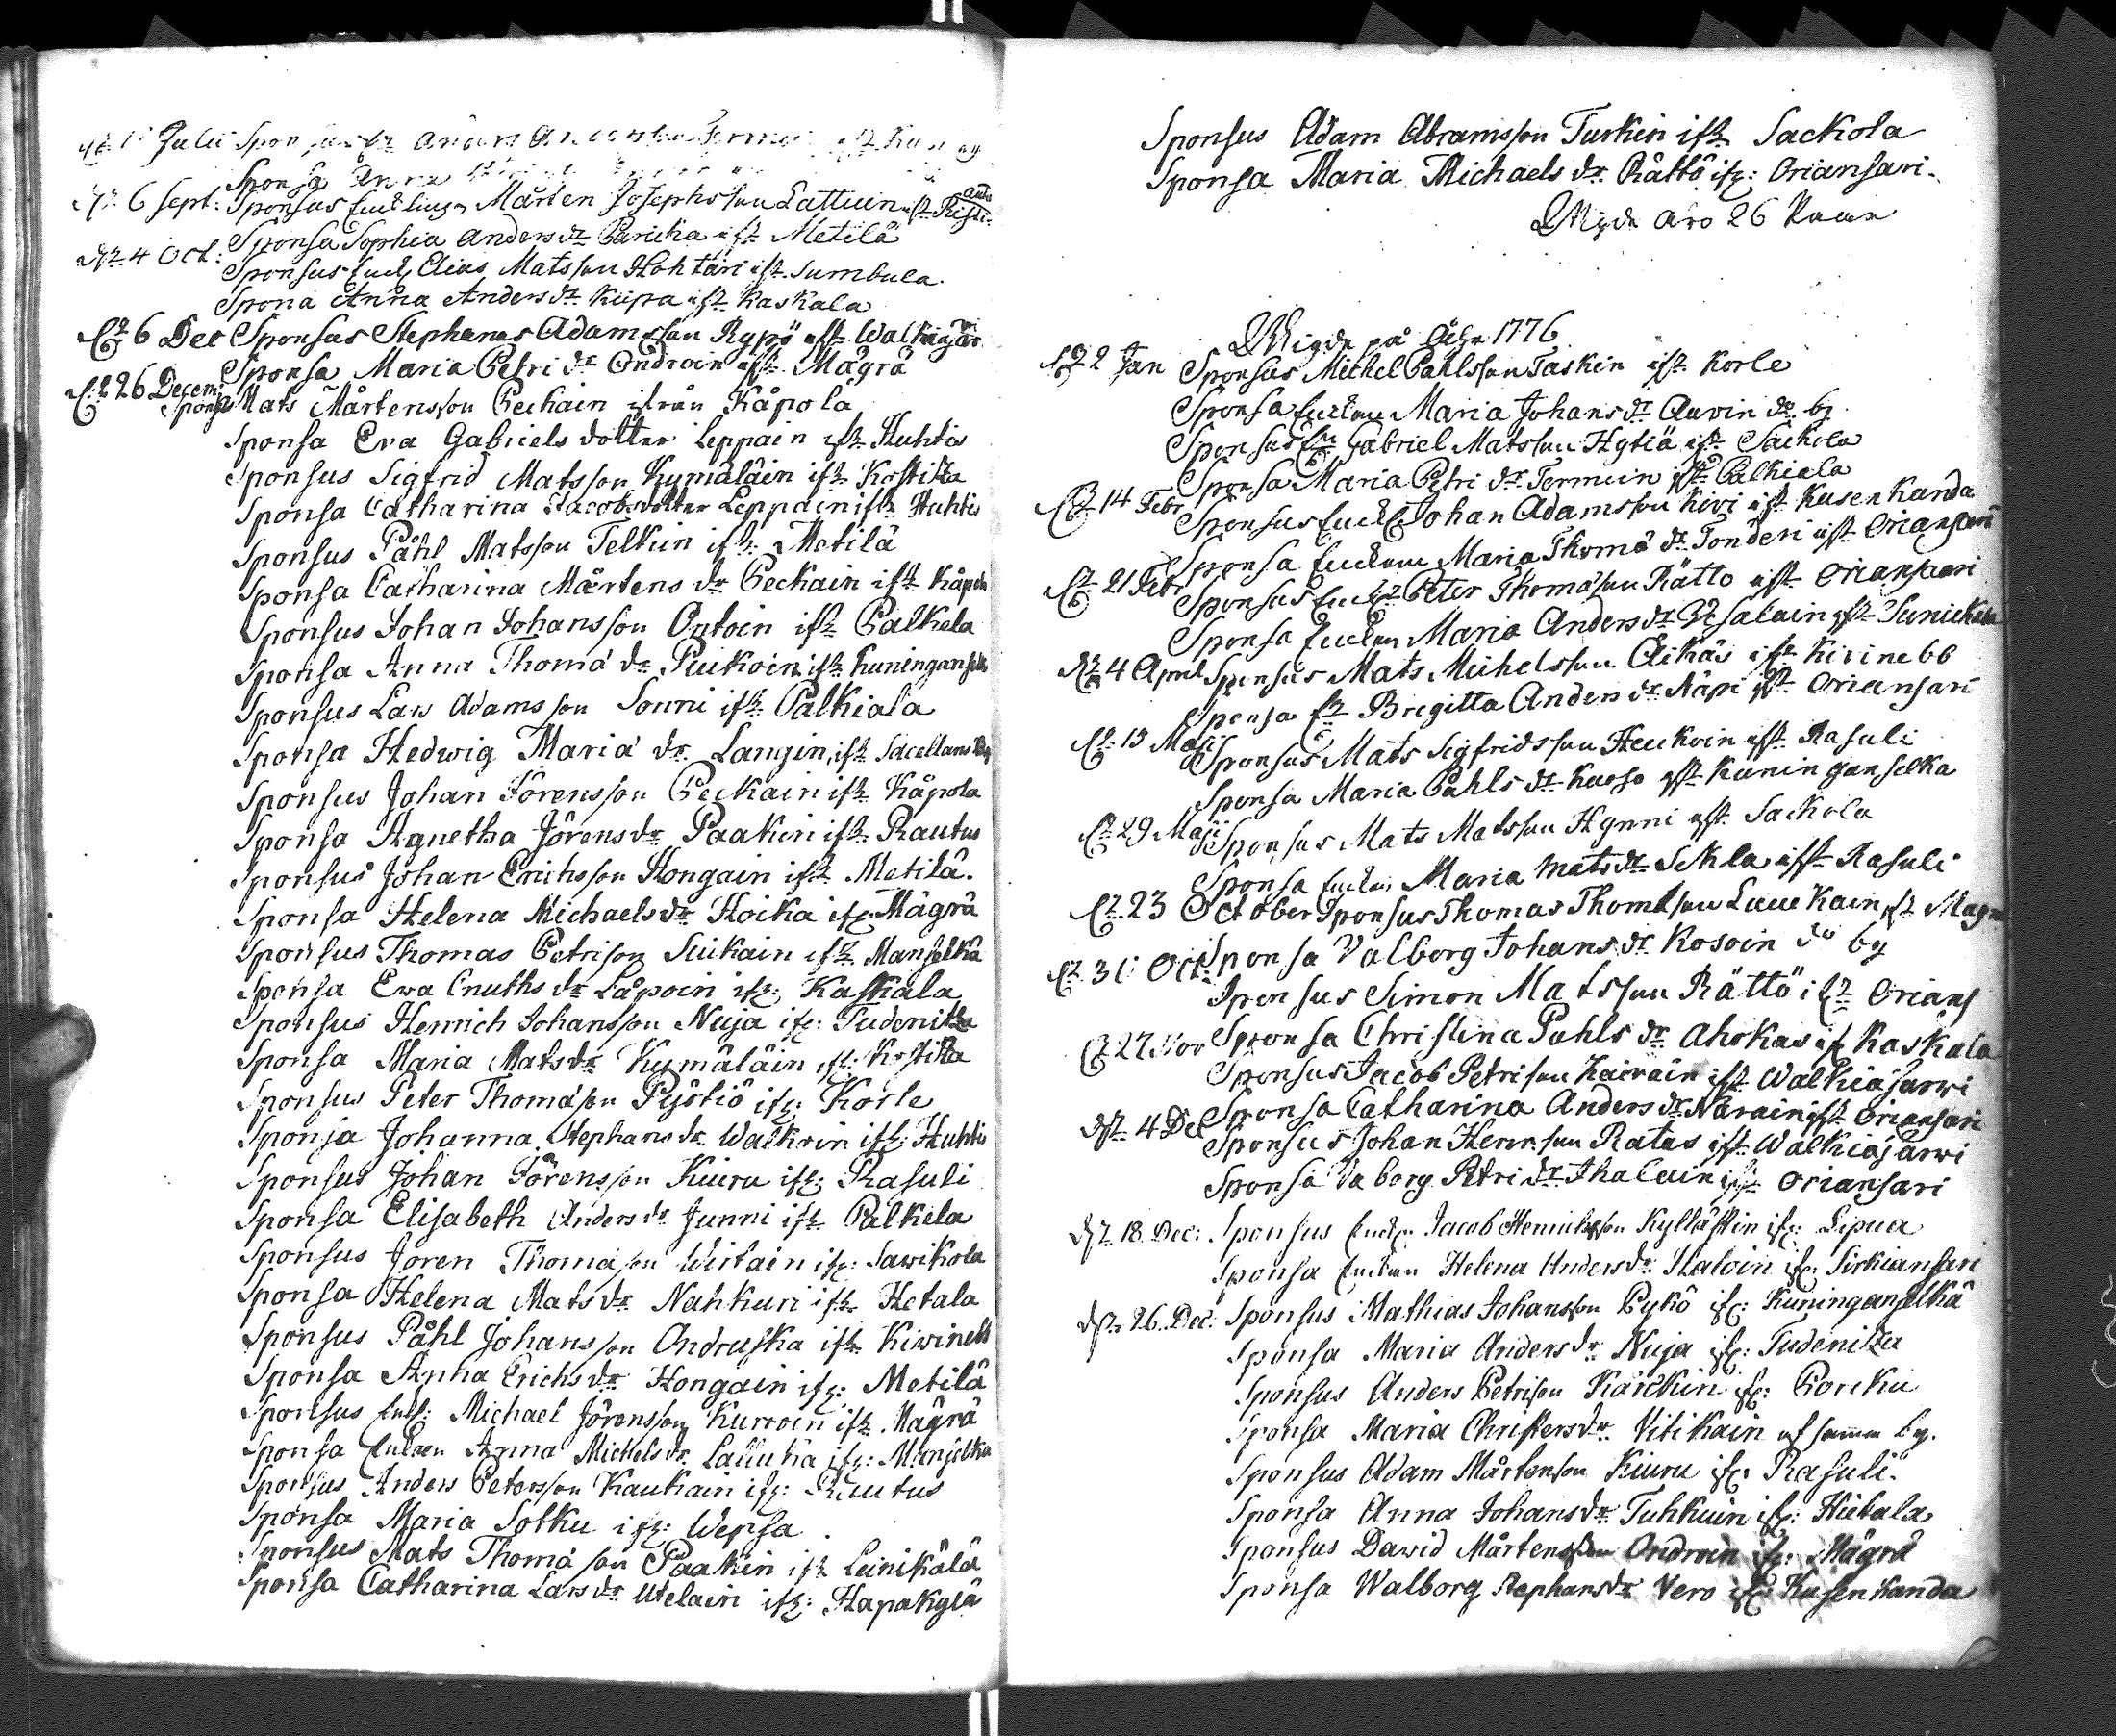 Julii
Sponsa Anna
6 Sept: Sponsus Mårten Josephsson Lattuin
Sponsa Sophia Anders dr Paricka ifr Metilä
4 Oct: Sponsus Elias Matsson Hohtari ifr Sumbula
Spona Anna Anders dr Kiipa ifr Kaskala
6 Dec Sponsus Stephanus Adamsson Rypö ifr
Sponsa Maria Petri dr Ondroin ifr Mägrä
26 Decem: Sponsus Mats Mårtensson Peckain ifrån Kåpola
Sponsa Eva Gabriels dotter Leppain ifr Huhtis
Sponsus Sigfrid Matsson Kymäläin ifr Kostitza
Sponsa Catharina Jacobs dotter Leppain ifr Huhtis
Sponsus Påhl Matsson Telkiin ifr Metilä
Sponsa Catharina Mårtens dr Peckain ifr Kåpola
Sponsus Johan Johansson Ontoin ifr Palkela
Sponsa Anna Thomæ dr Puikoin ifr Kuninganselkä
Sponsus Lars Adamsson Sonni ifr Palkiala
Sponsa Hedwig Maria dr Langin ifr Sacellans
Sponsus Johan Jörensson Peckain ifr Kåpola
Sponsa Agnetha Jörens dr Paakin ifr Rautus
Sponsus Johan Erichsson Hongain ifr Metilä.
Sponsa Helena Michaels dr Hoika ifr Mägrä
Sponsus Thomas Petrison Suikain ifr Manselkä
Sponsa Ewa Cnuths dr Låpoin ifr: Kaskala
Sponsus Henrich Johansson Nuja ifr: Tudenitza
Sponsa Maria Mats dr Kymäläin ifr: Kostitza
Sponsus Peter Thomæson Pystiö ifr: Korle
Sponsa Johanna Stephans dr Walkoin ifr: Huhtis
Sponsus Johan Jörensson Kiuru ifr: Rasuli
Sponsa Elisabeth Anders dr Junni ifr Palkela
Sponsus Jören Thomæson Wirtain ifr: Sawikola
Sponsa Helena Mats dr Nahkuri ifr Hetala
Sponsus Påhl Johansson Andruska ifr Kiwinebb
Sponsa Anna Erichs dr Hongain ifr: Metilä
Sponsus Michael Jörensson Kurroin ifr Mägrä
Sponsa Enkan Anna Michels dr Lallukka ifr: Manselkä
Sponsus Anders Petersson Kaukain ifr: Rautus
Sponsa Maria Sotku ifr: Wepsa
Sponsus Mats Thomæson Paakin ifr Leinikälä
Sponsa Catharina Lars dr Utelain ifr: Hapakylä
Sponsus Adam Abramsson Turkin ifr Sackola
Sponsa Maria Michaels dr Rättö ifr: Oriansari.
Wigde äro 26 Paar
Wigde på Åhr 1776
2 Jan Sponsus Michel Pahlsson Taskin ifr Korle
Sponsa Enkan Maria Johans dr Auvin do by
Sponsus Gabriel Matsson Hytiä ifr Sackola
Sponsa Maria Petri dr Termein ifr Palkiala
14 Febr Sponsus Johan Adamsson Kivi ifr Kusenkanda
Sponsa Enkan Maria Thomæ dr Tonderi ifr Oriansari
21 Febr Sponsus Peter Thomæson Rätto ifr Oriansaari
Sponsa Enkan Maria Anders dr ifr
4 April Sponsus Mats Michelsson Äikäs ifr Kivinebb
Sponsa Brigitta Anders dr Näpi ifr Oriansari
15 Maji Sponsus Mats Sigfridsson Heukoin ifr Rasuli
Sponsa Maria Pahls dr Kaoso ifr Kuninganselka
29 Maji Sponsus Mats Matsson Hynni ifr Sackola
Sponsa Enkan Maria Mats dr Sikla ifr Rasuli
23 October Sponsus Thomas Thomæson Luukain ifr Mägrä
Sponsa Valborg Johans dr Kosoin do by
31 Oct: Sponsus Simon Matsson Rättö ifr Orians
Sponsa Christina Pahls dr Ahokas ifr Kaskala
27 Nov Sponsus Jacob Petrison Kairain ifr Walkiajarwi
Sponsa Catharina Anders dr Närain ifr Oriansari
4 Dec Sponsus Johan Henrson Ratas ifr Walkiajarwi
Sponsa Vaborg Petri dr Ihalain ifr Oriansari
18 Dec: Sponsus Jacob Henrichsson Kyllästin ifr: Lipua
Sponsa Enkan Helena Anders dr Haloin ifr: Sirkiansari
26 Dec: Sponsus Mathias Johansson Pykö ifr: Kuninganselkä
Sponsa Maria Anders dr Nuja ifr: Tudenitza
Sponsus Anders Petrison Karckin ifr: Porcku
Sponsa Maria Christers dr Vitikain af samma by.
Sponsus Adam Mårtenson Kiuru ifr: Rasuli.
Sponsa Anna Johans dr Tuhkuin ifr: Hietala
Sponsus Dawid Mårtensson Ondroin ifr: Mägrä
Sponsa Walborg Stephans dr Vero ifr: Kusenkanda